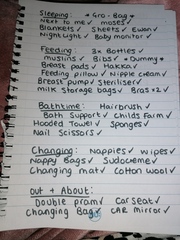 Sleeping: * Gro-Bag *
Next to me * moses *
Blankets * Sheets * Ewan *
Night Light * Baby monitor *
Feeding: 3x Bottles *
muslins * Bibs * Dummy *
Breast pads * Hakka *
Feeding pillow * Nipple cream *
Breast pump * Steriliser *
milk storage bags * Bras x2 *
Bathtime: Hairbrush *
Bath Support * Childs Farm *
Hooded Towel * Sponges *
Nail Scissors *
Changing: Nappies * Wipes *
Nappy Bags * Sudocreme *
Changing mat * Cotton wool *
Out + About:
Double pram * Car Seat *
Changing Bag * CAR Mirror *